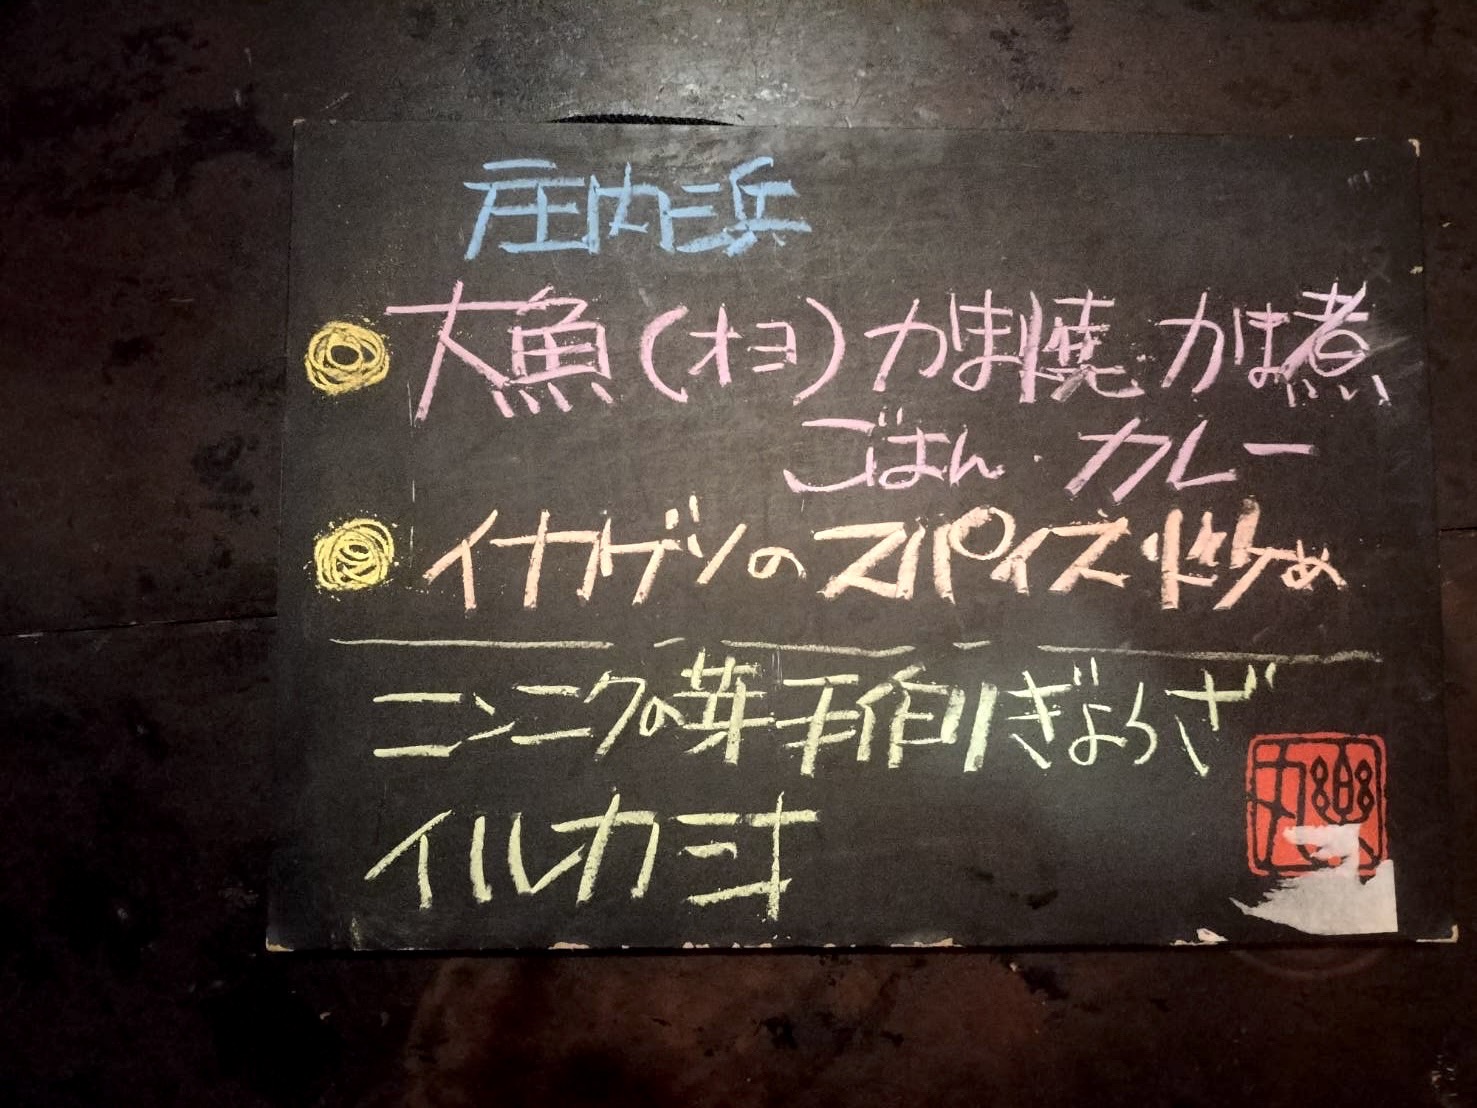 庄内浜
大魚(オヨ)かま焼 かま煮
ごはん・カレー
イカゲソのスパイス炒め
ニンニクの芽手作りぎょうざ
イルカミオ